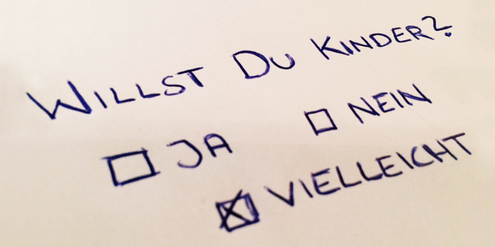 WILLST DU KINDER?
JA
NEIN
VIELLEICHT